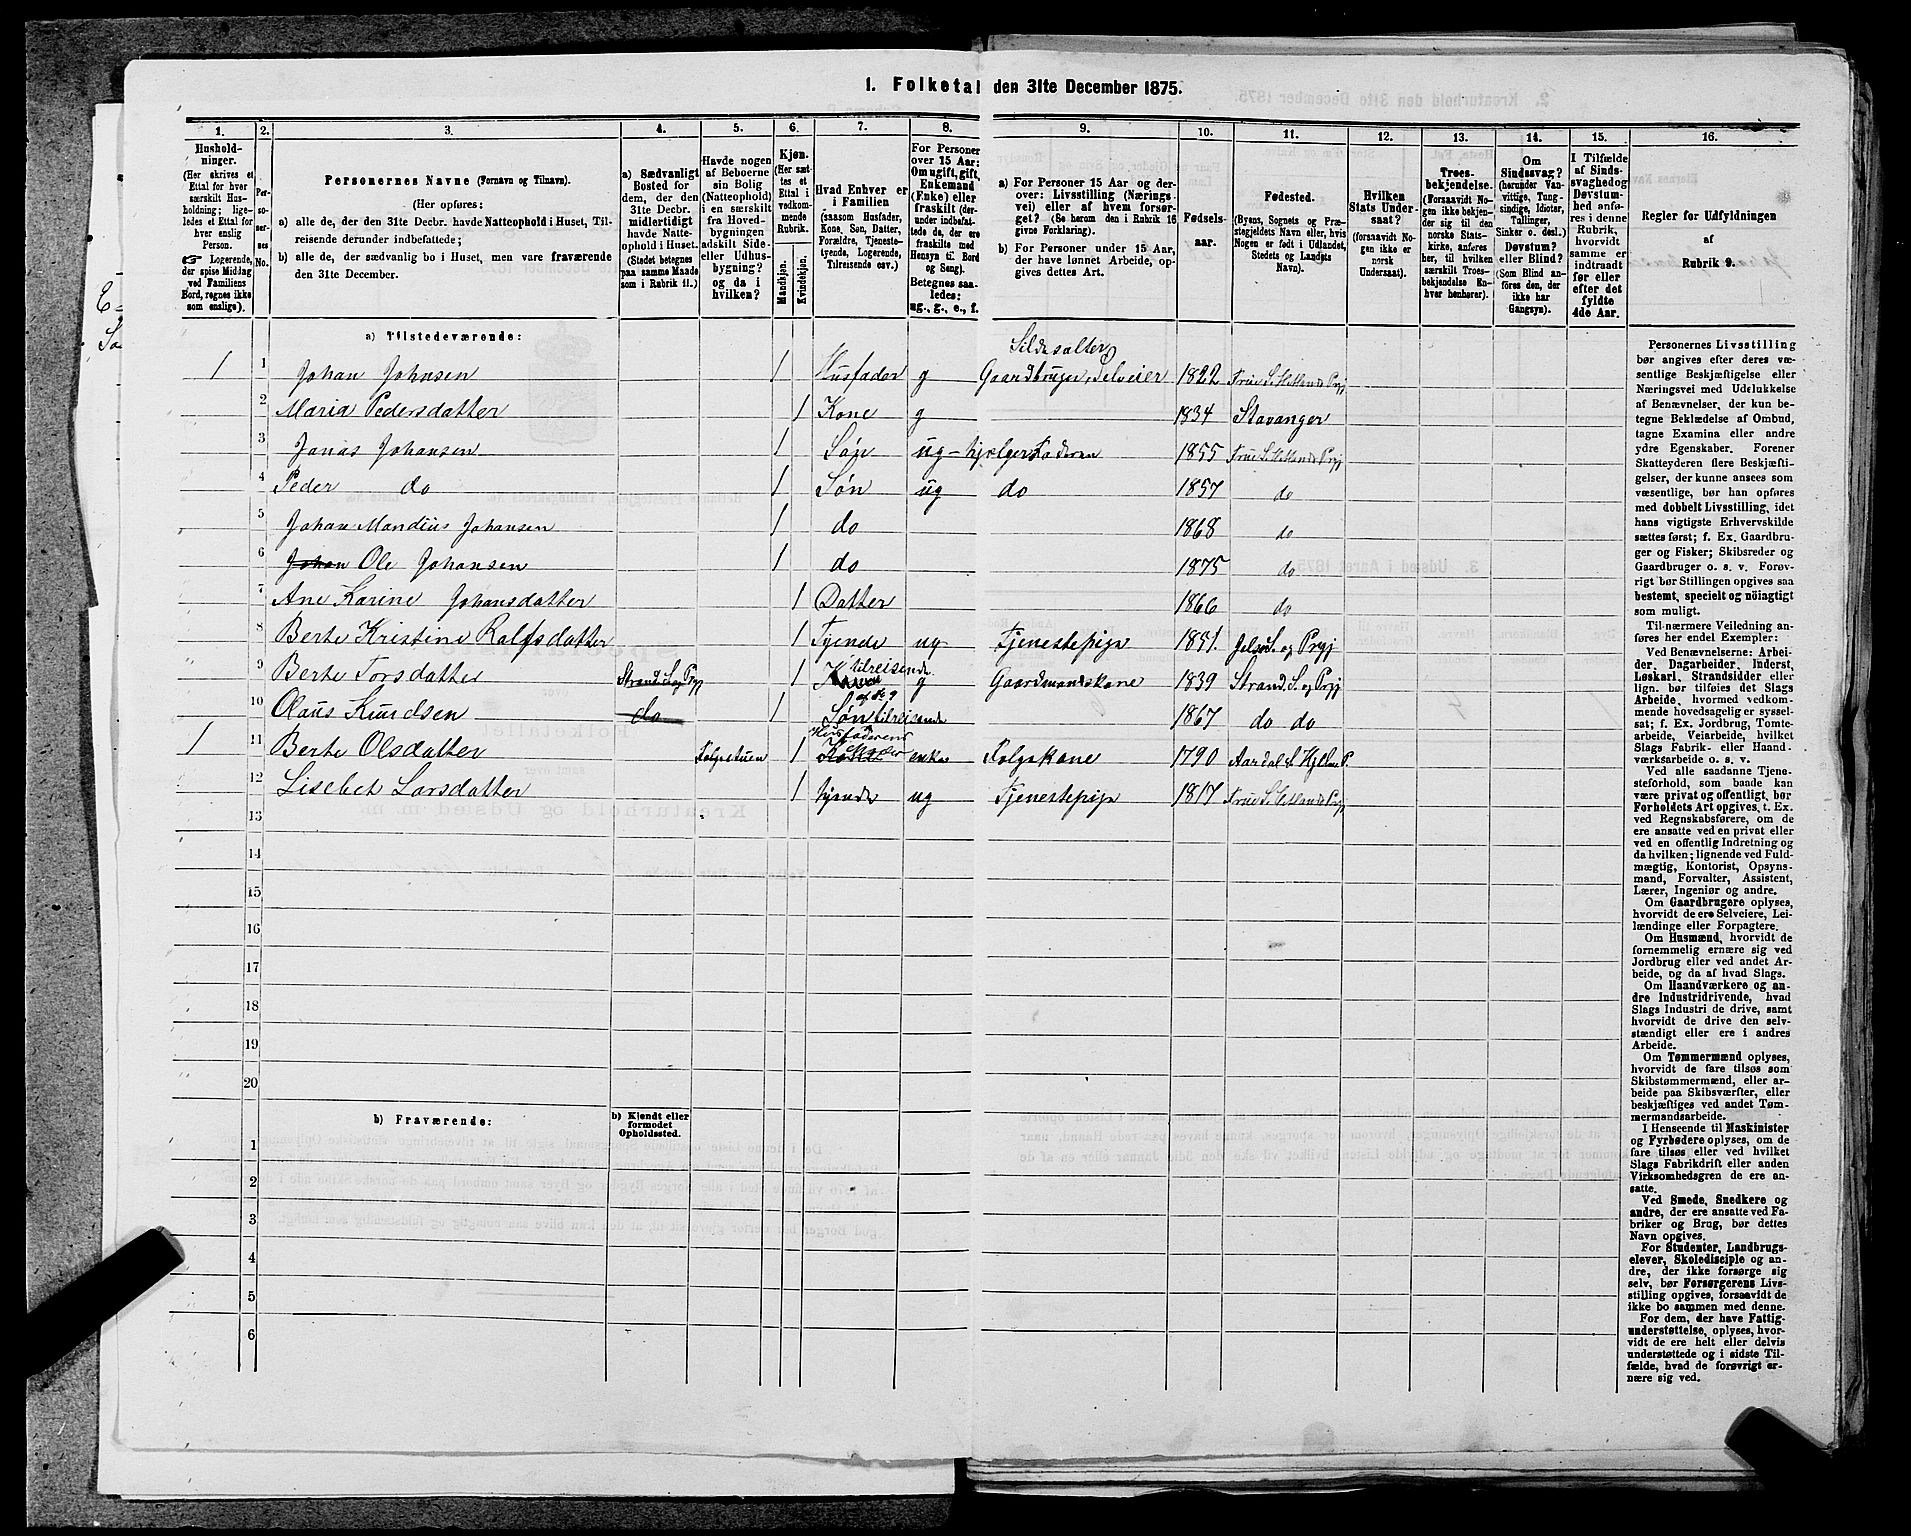 1. Folketal den 31te December 1875.
1. 2. 3. 4. 5. 6. 7. 8. 9. 10. 11. 12. 13. 14. 15. 16.
Hushold-
ninger.
(Her skrives et
Ettal for hver
særskilt Hus-
holdning; lige-
ledes et Ettal for
hver enslig
Person.
☞ Logerende,
der spise Middag
ved Familiens
Bord, regnes ikke
som enslige).
Per-
so-
ner-
nes
No.
Personernes Navne (Fornavn og Tilnavn).
(Her opføres:
a) alle de, der den 31te Decbr. havde Natteophold i Huset, Til-
reisende derunder indbefattede;
b) alle de, der sædvanlig bo i Huset, men vare fraværende
den 31te December.
a) Sædvanligt
Bosted for
dem, der den
31te Decbr.
midlertidigt
havde Natte-
ophold i Huset.
(Stedet betegnes
paa samme Maade
som i Rubrik 11.)
Havde nogen
af Beboerne
sin Bolig
(Natteophold)
i en særskilt
fra Hoved-
bygningen
adskilt Side-
eller Udhus-
bygning?
og da i
hvilken?
Kjøn.
(Her sæt-
tes et
Ettal i
vedkom-
mende
Rubrik.
Mandkjøn.
Kvindekjøn.
Hvad Enhver er
i Familien
(saasom Husfader,
Kone, Søn, Datter,
Forældre, Tjeneste-
tyende, Logerende,
Tilreisende osv.)
For Personer
over 15 Aar:
Om ugift, gift,
Enkemand
(Enke) eller
fraskilt (der-
under indbefat-
tede de, der ere
fraskilte med
Hensyn til Bord
og Seng).
Betegnes saa-
ledes:
ug., g., e., f.
a) For Personer 15 Aar og der-
over: Livsstilling (Nærings-
vei) eller af hvem forsør-
get? (Se herom den i Rubrik 16
givne Forklaring).
b) For Personer under 15 Aar,
der have lønnet Arbeide, op-
gives dettes Art.
Fødsels-
aar.
Fødested.
(Byens, Sognets og Præ-
stegjeldets Navn eller, hvis
Nogen er født i Udlandet,
Stedets og Landets
Navn).
Hvilken
Stats Under-
saat?
(forsaavidt No-
gen ikke er
norsk
Undersaat).
Troes-
bekjendelse.
(Forsaavidt No-
gen ikke bekjen-
der sig til den
norske Stats-
kirke, anføres
her, til hvilken
særskilt Troes-
bekjendelse En-
hver henhører).
Om
Sindssvag?
(herunder Van-
vittige, Tung-
sindige, Idioter,
Tullinger,
Sinker o. desl.)
Døvstum?
eller Blind?
(Som Blind an-
føres den, der
ikke har
Gangsyn).
I Tilfælde
af Sinds-
svaghed og
Døvstum-
hed anfø-
res i denne
Rubrik,
hvorvidt
samme er
indtraadt
før eller
efter det
fyldte
4de Aar.
Regler for Udfyldningen
af
Rubrik 9.
a) Tilstedeværende:
Sildesalter
1 1 Johan Johnsen 1 Husfader g Gaardbruger, Selveier 1822 Frue S. Hetlands Prgj
2 Maria Pedersdatter 1 Kone g 1834 Stavanger
3 Jonas Johansen 1 Søn ug hjelper Faderen 1855 Frue S. Hetlands Prgj
4 Peder do 1 Søn ug do 1857 do
5 Johan Mandius Johansen 1 do 1868 do
6 Johan Ole Johansen 1 do 1875 do
7 Ane Karine Johansdatter 1 Datter 1866 do
8 Berte Kristine Ralfsdatter 1 Tyende ug Tjenestepige 1851. Jelse S. og Prgj
9 Berte Torsdatter Strand S. og Prgj 1 tilreisende g Gaardmandskone 1839 Strand S. og Prgj
10 Olaus Knudsen do 1 Søn af No 9 tilreisende 1867 do do
1 11 Berte Olsdatter Folgestuen 1 Husfaderens Moder enke Folgekone 1790 Aardal S. Hjelme P.
12 Lisebet Larsdatter 1 tyende ug Tjenestepige 1817 Frue S. Hetlands Prgj
13
14
15
16
17
18
19
20
b) Fraværende:
b) Kjendt eller
formodet
Opholdssted.
1
2
3
4
5
6
Personernes Livsstilling
bør angives efter deres væ-
sentlige Beskjæftigelse eller
Næringsvei med Udelukkelse
af Benævnelser, der kun be-
tegne Beklædelse af Ombud,
tagne Examina eller andre
ydre Egenskaber. Forener
Skatteyderen flere Beskjæfti-
gelser, der kunne ansees som
væsentlige, bør han opføres
med dobbelt Livsstilling, idet
hans vigtigste Erhvervskilde
sættes først; f. Ex. Gaardbru-
ger og Fisker; Skibsreder og
Gaardbruger o. s. v. Forøv-
rigt bør Stillingen opgives saa
bestemt, specielt og nøiagtigt
som muligt.
Til nærmere Veiledning an-
føres her endel Exempler:
Ved Benævnelserne: Arbei-
der, Dagarbeider, Inderst,
Løskarl, Strandsidder eller
lign. bør tilføies det Slags
Arbeide, hvormed vedkom-
mende hovedsagelig er syssel-
sat; f. Ex. Jordbrug, Tomte-
arbeide, Veiarbeide, hvilket
Slags Fabrik- eller Haand-
værksarbeide o. s. v.
Ved alle saadanne Tjene-
steforhold, som baade kan
være privat og offentligt, bør
Forholdets Art opgives, t. Ex.
ved Regnskabsførere, om de
ere ansatte ved en privat eller
ved en offentlig Indretning og
da hvilken; lignende ved Fuld-
mægtig, Kontorist, Opsyns-
mand, Forvalter, Assistent,
Lærer, Ingeniør og andre.
Om Gaardbrugere oplyses,
hvorvidt de ere Selveiere, Lei-
lændinge eller Forpagtere.
Om Husmænd, hvorvidt de
fornemmelig ernære sig ved
Jordbrug eller ved andet Ar-
beide, og da af hvad Slags.
Om Haandværkere og an-
dre Industridrivende, hvad
Slags Industri de drive, samt
hvorvidt de drive den selv-
stændigt eller ere i andres
Arbeide.
Om Tømmermænd oplyses,
hvorvidt de fare tilsøs som
Skibstømmermænd, eller ar-
beide paa Skibsværfter, eller
beskjæftiges ved andet Tøm-
mermandsarbeide.
I Henseende til Maskinister
og Fyrbødere oplyses, om de
fare tilsøs eller ved hvilket
Slags Fabrikdrift eller anden
Virksomhedsgren de ere an-
satte.
Ved Smede, Snedkere og
andre, der ere ansatte ved Fa-
briker og Brug, bør dettes
Navn opgives.
For Studenter, Landbrugs-
elever, Skoledisciple og an-
dre, der ikke forsørge sig
selv, bør Forsørgerens Livs-
stilling opgives, forsaavidt de
ikke bo sammen med denne.
For dem, der have Fattig-
understøttelse, oplyses, hvor-
vidt de ere helt eller delvis
understøttede og i sidste Til-
fælde, hvad de forøvrigt er-
nære sig ved.